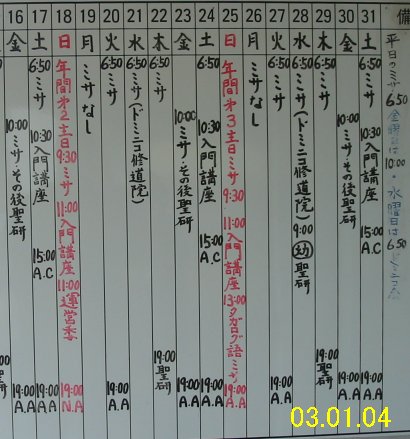 16
金
10:00
ミサ・その後聖研
19:00
A.A
17
土
6:50
ミサ
10:30
入門講座
15:00
A.C
19:00
A.A
18
日
年間才2主日
9:30
ミサ
11:00
入門講座
11:00
運営委
19:00
N.A
19
月
ミサなし
20
火
6:50
ミサ
19:00
A.A
21
水
6:50
ミサ(ドミニコ修道院)
22
木
6:50
ミサ
19:00
聖研
23
金
10:00
ミサ・その後聖研
19:00
A.A
24
土
6:50
ミサ
10:30
入門講座
15:00
A.C
19:00
A.A
25
日
年間才3主日ミサ
9:30
11:00
入門講座
13:00
タガログ語ミサ
19:00
A.A
26
月
ミサなし
27
火
6:50
ミサ
19:00
A.A
28
水
6:50
ミサ(ドミニコ修道院)
9:00
幼 聖研
29
木
6:50
ミサ
19:00
聖研
30
金
10:00
ミサ・その後聖研
19:00
A.A
31
土
6:50
ミサ
10:30
入門講座
15:00
A.C
19:00
A.A
備
平日のミサ 6:50
金曜日は 10:00・水曜日は 6:50
03.01.04